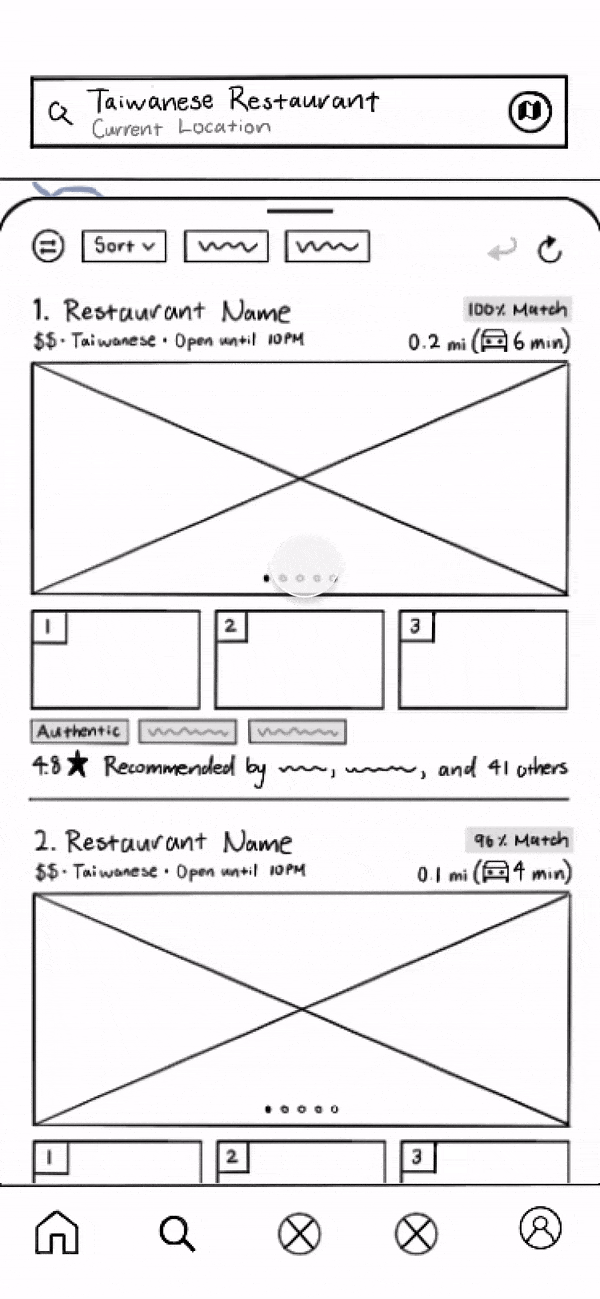 Taiwanese Restaurant
Current Location
Sort
1. Restaurant Name
100% Match
$$ · Taiwanese · Open until 10PM
0.2 mi ( 6 min)
1
2
3
Authentic
4.8 ★ Recommended by , , and 41 others
2. Restaurant Name
96% Match
$$ · Taiwanese · Open until 10PM
0.1 mi ( 4 min)
1
2
3